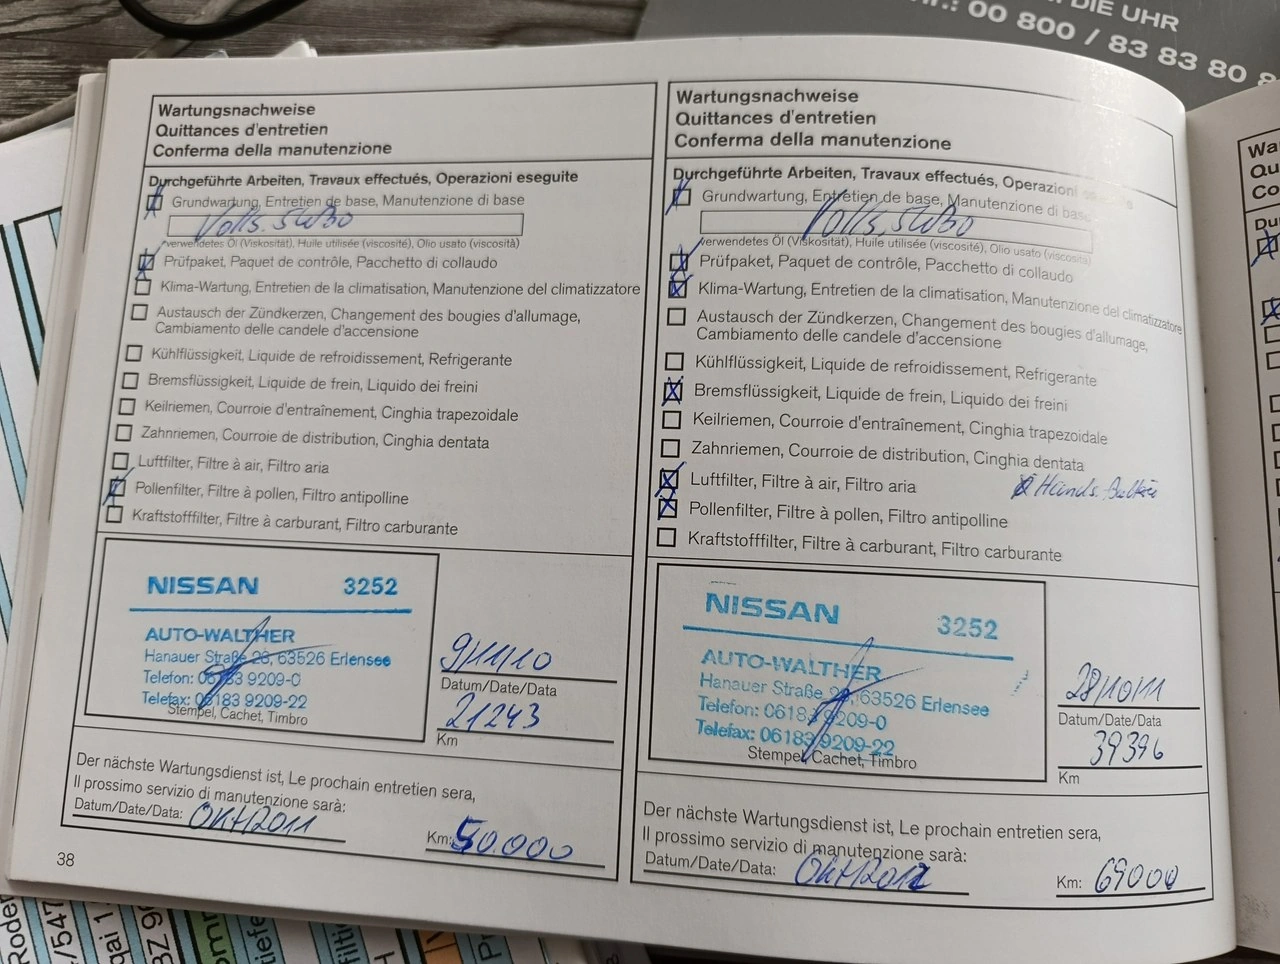 DIE UHR
00 800 / 83 83 80 8
Wartungsnachweise
Quittances d'entretien
Conferma della manutenzione
Durchgeführte Arbeiten, Travaux effectués, Operazioni eseguite
Grundwartung, Entretien de base, Manutenzione di base
Volls. 5W30
verwendetes Öl (Viskosität), Huile utilisée (viscosité), Olio usato (viscosità)
Prüfpaket, Paquet de contrôle, Pacchetto di collaudo
Klima-Wartung, Entretien de la climatisation, Manutenzione del climatizzatore
Austausch der Zündkerzen, Changement des bougies d'allumage,
Cambiamento delle candele d'accensione
Kühlflüssigkeit, Liquide de refroidissement, Refrigerante
Bremsflüssigkeit, Liquide de frein, Liquido dei freini
Keilriemen, Courroie d'entraînement, Cinghia trapezoidale
Zahnriemen, Courroie de distribution, Cinghia dentata
Luftfilter, Filtre à air, Filtro aria
Pollenfilter, Filtre à pollen, Filtro antipolline
Kraftstofffilter, Filtre à carburant, Filtro carburante
NISSAN 3252
AUTO-WALTHER
Hanauer Straße 28, 63526 Erlensee
Telefon: 06183 9209-0
Telefax: 06183 9209-22
Stempel, Cachet, Timbro
9/11/10
Datum/Date/Data
21243
Km
Der nächste Wartungsdienst ist, Le prochain entretien sera,
Il prossimo servizio di manutenzione sarà:
Datum/Date/Data: Okt/2011
Km: 50.000
38
Wartungsnachweise
Quittances d'entretien
Conferma della manutenzione
Durchgeführte Arbeiten, Travaux effectués, Operazioni
Grundwartung, Entretien de base, Manutenzione di base
Volls. 5W30
verwendetes Öl (Viskosität), Huile utilisée (viscosité), Olio usato (viscosità)
Prüfpaket, Paquet de contrôle, Pacchetto di collaudo
Klima-Wartung, Entretien de la climatisation, Manutenzione del climatizzatore
Austausch der Zündkerzen, Changement des bougies d'allumage,
Cambiamento delle candele d'accensione
Kühlflüssigkeit, Liquide de refroidissement, Refrigerante
Bremsflüssigkeit, Liquide de frein, Liquido dei freini
Keilriemen, Courroie d'entraînement, Cinghia trapezoidale
Zahnriemen, Courroie de distribution, Cinghia dentata
Luftfilter, Filtre à air, Filtro aria
Hands.
Pollenfilter, Filtre à pollen, Filtro antipolline
Kraftstofffilter, Filtre à carburant, Filtro carburante
NISSAN 3252
AUTO-WALTHER
Hanauer Straße 28, 63526 Erlensee
Telefon: 06183 9209-0
Telefax: 06183 9209-22
Stempel, Cachet, Timbro
28/10/11
Datum/Date/Data
39396
Km
Der nächste Wartungsdienst ist, Le prochain entretien sera,
Il prossimo servizio di manutenzione sarà:
Datum/Date/Data: Okt/2012
Km: 69000
Wa
Qu
Co
Du